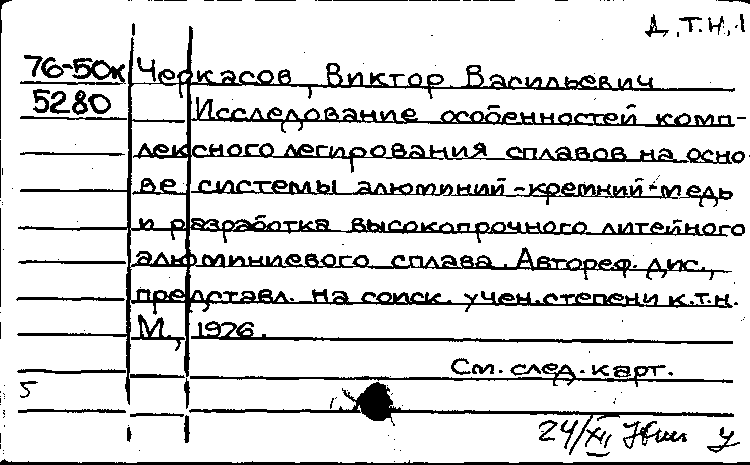 Д.Т.Н.
76-50к Черкасов, Виктор Васильевич
5280 Исследование особенностей комп-
лексного легирования сплавов на осно-
ве системы алюминий-кремний-медь
и разработка высокопрочного литейного
алюминиевого сплава. Автореф. дис.,
представл. на соиск. учен. степени к.т.н.
М., 1976.
См. след. карт.
5
24/XII